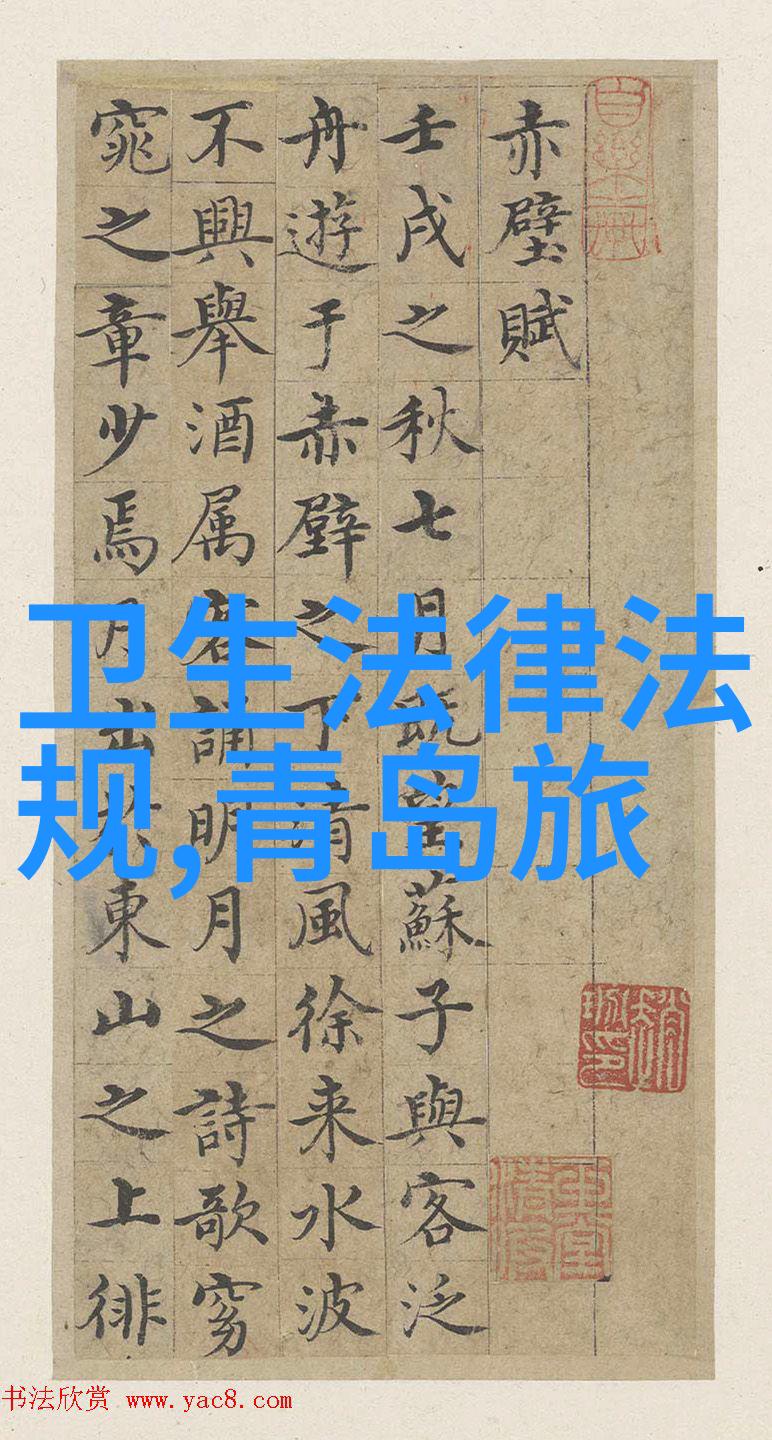 赤壁賦
壬戌之秋七月既望蘇子與客泛
舟遊于赤壁之下清風徐来水波
不興舉酒属客誦明月之詩歌窈
窕之章少焉月出於東山之上徘
卫生法律法
规,青岛旅
书法欣赏 www.yac8.com